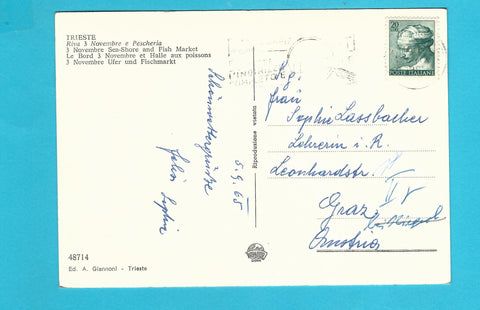 TRIESTE
Riva 3 Novembre e Pescheria
3 Novembre Sea-Shore and Fish Market
Le Bord 3 Novembre et Halle aux poissons
3 Novembre Ufer und Fischmarkt
Schönwettergrüße
5.9.65
48714
Ed. A. Giannoni - Trieste
Riproduzione vietata
20
POSTE ITALIANE
Frau
Sophie Lassbacher
Lehrerin i. R.
Leonhardstr.
Graz
Austria